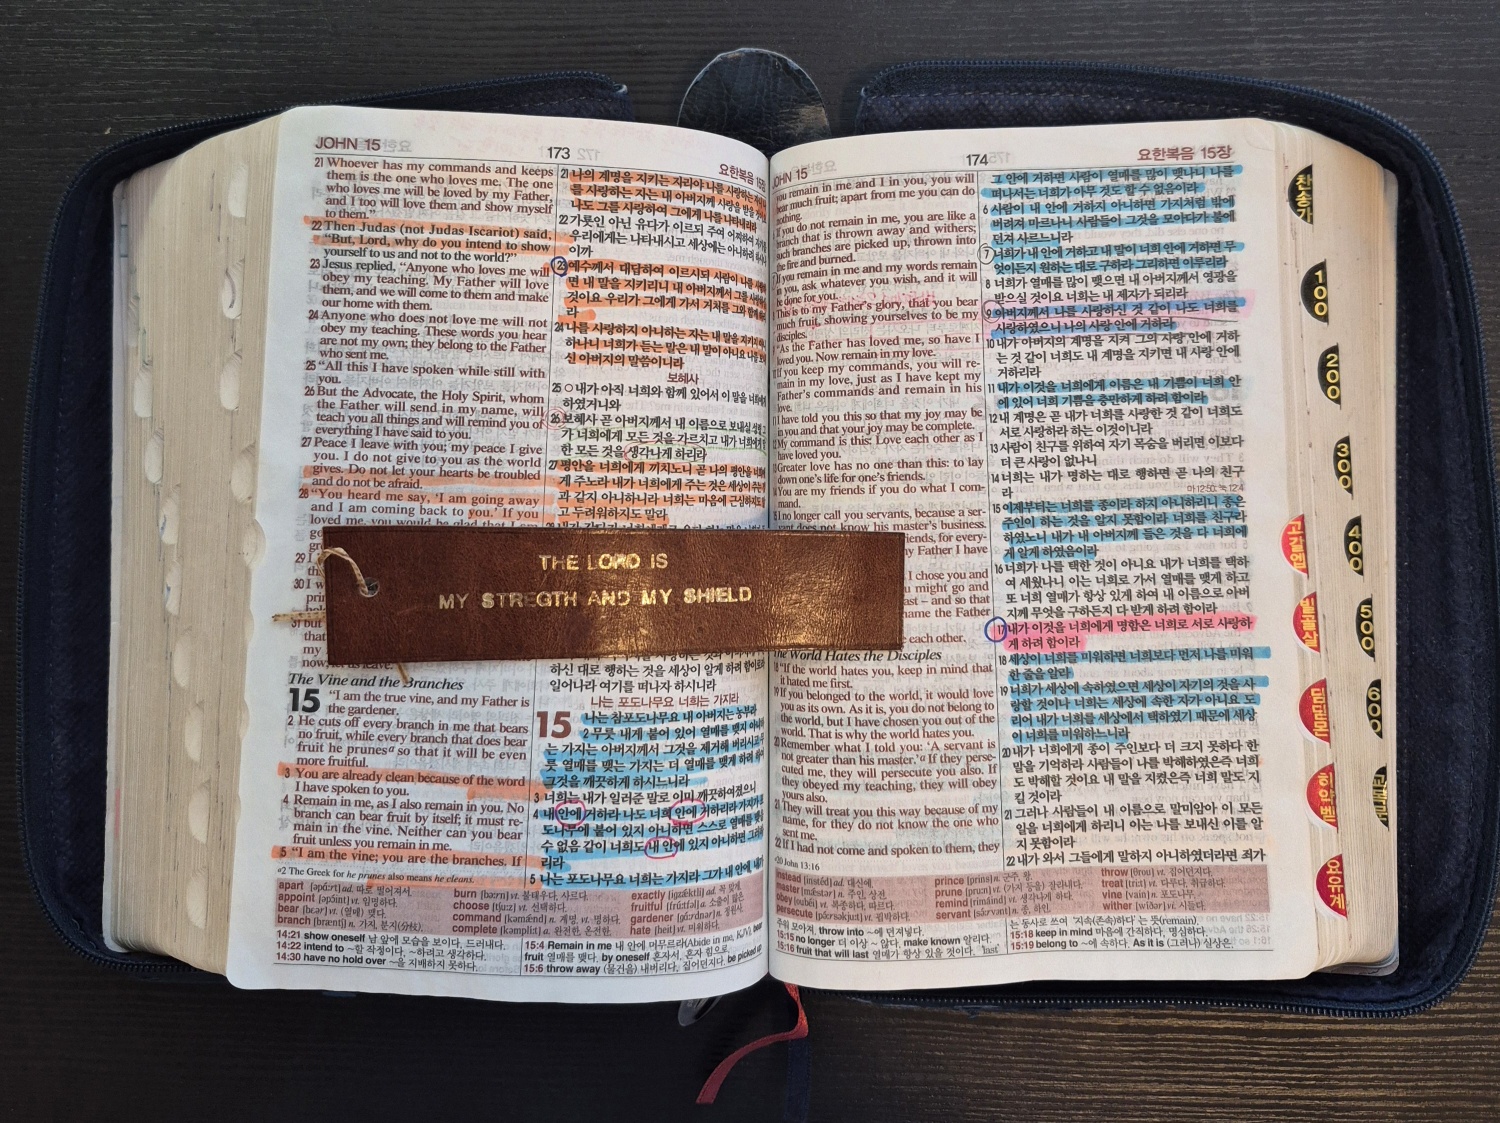 JOHN 15
173
요한복음 15장
21 Whoever has my commands and keeps
them is the one who loves me. The one
who loves me will be loved by my Father,
and I too will love them and show myself
to them."
22 Then Judas (not Judas Iscariot) said,
"But, Lord, why do you intend to show
yourself to us and not to the world?"
23 Jesus replied, "Anyone who loves me will
obey my teaching. My Father will love
them, and we will come to them and make
our home with them.
24 Anyone who does not love me will not
obey my teaching. These words you hear
are not my own; they belong to the Father
who sent me.
25 "All this I have spoken while still with
you.
26 But the Advocate, the Holy Spirit, whom
the Father will send in my name, will
teach you all things and will remind you of
everything I have said to you.
27 Peace I leave with you; my peace I give
you. I do not give to you as the world
gives. Do not let your hearts be troubled
and do not be afraid.
28 "You heard me say, 'I am going away
and I am coming back to you.' If you
loved me, you would be glad that I am
29
30
31 but
that
my
now; let us leave.
The Vine and the Branches
15 "I am the true vine, and my Father is
the gardener.
2 He cuts off every branch in me that bears
no fruit, while every branch that does bear
fruit he prunes a so that it will be even
more fruitful.
3 You are already clean because of the word
I have spoken to you.
4 Remain in me, as I also remain in you. No
branch can bear fruit by itself; it must re-
main in the vine. Neither can you bear
fruit unless you remain in me.
5 "I am the vine; you are the branches. If
a2 The Greek for he prunes also means he cleans.
21 나의 계명을 지키는 자라야 나를 사랑하는
를 사랑하는 자는 내 아버지께 사랑을 받을
나도 그를 사랑하여 그에게 나를 나타내리라
22 가룟인 아닌 유다가 이르되 주여 어찌하여
우리에게는 나타내시고 세상에는 아니하려
이까
23 예수께서 대답하여 이르시되 사람이 나를
면 내 말을 지키리니 내 아버지께서 그를
것이요 우리가 그에게 가서 거처를 그와 함께
라
24 나를 사랑하지 아니하는 자는 내 말을 지키지
하나니 너희가 듣는 말은 내 말이 아니요 나를
신 아버지의 말씀이니라
보혜사
25 ○내가 아직 너희와 함께 있어서 이 말을 너희에게
하였거니와
26 보혜사 곧 아버지께서 내 이름으로 보내실
가 너희에게 모든 것을 가르치고 내가 너희에게
한 모든 것을 생각나게 하리라
27 평안을 너희에게 끼치노니 곧 나의 평안을 너희에
게 주노라 내가 너희에게 주는 것은 세상이 주는
과 같지 아니하니라 너희는 마음에 근심하지도
고 두려워하지도 말라
THE LORD IS
MY STREGTH AND MY SHIELD
하신 대로 행하는 것을 세상이 알게 하려 함이로
일어나라 여기를 떠나자 하시니라
나는 포도나무요 너희는 가지라
15 나는 참포도나무요 내 아버지는 농부라
2 무릇 내게 붙어 있어 열매를 맺지 아니하
는 가지는 아버지께서 그것을 제거해 버리시고
릇 열매를 맺는 가지는 더 열매를 맺게 하려
그것을 깨끗하게 하시느니라
3 너희는 내가 일러준 말로 이미 깨끗하여졌으니
4 내 안에 거하라 나도 너희 안에 거하리라 가지가
도나무에 붙어 있지 아니하면 스스로 열매를
수 없음 같이 너희도 내 안에 있지 아니하면 그러
리라
5 나는 포도나무요 너희는 가지라 그가 내 안에, 내가
apart [əpɑ́ːrt] ad. 따로 떨어져서.
appoint [əpɔ́int] vt. 임명하다.
bear [bɛər] vt. (열매) 맺다.
branch [bræntʃ] n. 가지, 분지(分枝).
burn [bəːrn] vt. 불태우다, 사르다.
choose [tʃuːz] vt. 선택하다.
command [kəmǽnd] n. 계명, vt. 명하다.
complete [kəmplíːt] a. 완전한, 온전한.
exactly [igzǽktli] ad. 꼭 맞게.
fruitful [frúːtfəl] a. 소출이 많은
gardener [gɑ́ːrdnər] n. 정원사.
hate [heit] vt. 미워하다.
14:21 show oneself 남 앞에 모습을 보이다, 드러내다.
14:22 intend to ~할 작정이다, ~하려고 생각하다.
14:30 have no hold over ~을 지배하지 못하다.
15:4 Remain in me 내 안에 머무르라(Abide in me, KJV), bear
fruit 열매를 맺다, by oneself 혼자서, 혼자 힘으로.
15:6 throw away (물건을) 내버리다, 집어던지다. be picked up
JOHN 15
174
요한복음 15장
you remain in me and I in you, you will
bear much fruit; apart from me you can do
nothing.
If you do not remain in me, you are like a
branch that is thrown away and withers;
such branches are picked up, thrown into
the fire and burned.
If you remain in me and my words remain
in you, ask whatever you wish, and it will
be done for you.
This is to my Father's glory, that you bear
much fruit, showing yourselves to be my
disciples.
"As the Father has loved me, so have I
loved you. Now remain in my love.
If you keep my commands, you will re-
main in my love, just as I have kept my
Father's commands and remain in his
love.
I have told you this so that my joy may be
in you and that your joy may be complete.
My command is this: Love each other as I
have loved you.
Greater love has no one than this: to lay
down one's life for one's friends.
You are my friends if you do what I com-
mand.
I no longer call you servants, because a ser-
vant does not know his master's business.
friends, for every-
my Father I have
I chose you and
might go and
last – and so that
name the Father
each other.
The World Hates the Disciples
18 "If the world hates you, keep in mind that
it hated me first.
19 If you belonged to the world, it would love
you as its own. As it is, you do not belong to
the world, but I have chosen you out of the
world. That is why the world hates you.
20 Remember what I told you: 'A servant is
not greater than his master.' a If they perse-
cuted me, they will persecute you also. If
they obeyed my teaching, they will obey
yours also.
21 They will treat you this way because of my
name, for they do not know the one who
sent me.
22 If I had not come and spoken to them, they
a20 John 13:16
그 안에 거하면 사람이 열매를 많이 맺나니 나를
떠나서는 너희가 아무 것도 할 수 없음이라
6 사람이 내 안에 거하지 아니하면 가지처럼 밖에
버려져 마르나니 사람들이 그것을 모아다가 불에
던져 사르느니라
7 너희가 내 안에 거하고 내 말이 너희 안에 거하면 무
엇이든지 원하는 대로 구하라 그리하면 이루리라
8 너희가 열매를 많이 맺으면 내 아버지께서 영광을
받으실 것이요 너희는 내 제자가 되리라
9 아버지께서 나를 사랑하신 것 같이 나도 너희를
사랑하였으니 나의 사랑 안에 거하라
10 내가 아버지의 계명을 지켜 그의 사랑 안에 거하
는 것 같이 너희도 내 계명을 지키면 내 사랑 안에
거하리라
11 내가 이것을 너희에게 이름은 내 기쁨이 너희 안
에 있어 너희 기쁨을 충만하게 하려 함이라
12 내 계명은 곧 내가 너희를 사랑한 것 같이 너희도
서로 사랑하라 하는 이것이니라
13 사람이 친구를 위하여 자기 목숨을 버리면 이보다
더 큰 사랑이 없나니
14 너희는 내가 명하는 대로 행하면 곧 나의 친구
라
마 12:50, 눅 12:4
15 이제부터는 너희를 종이라 하지 아니하리니 종은
주인이 하는 것을 알지 못함이라 너희를 친구라
하였노니 내가 내 아버지께 들은 것을 다 너희에
게 알게 하였음이라
16 너희가 나를 택한 것이 아니요 내가 너희를 택하
여 세웠나니 이는 너희로 가서 열매를 맺게 하고
또 너희 열매가 항상 있게 하여 내 이름으로 아버
지께 무엇을 구하든지 다 받게 하려 함이라
17 내가 이것을 너희에게 명함은 너희로 서로 사랑하
게 하려 함이라
18 세상이 너희를 미워하면 너희보다 먼저 나를 미워
한 줄을 알라
19 너희가 세상에 속하였으면 세상이 자기의 것을 사
랑할 것이나 너희는 세상에 속한 자가 아니요 도
리어 내가 너희를 세상에서 택하였기 때문에 세상
이 너희를 미워하느니라
20 내가 너희에게 종이 주인보다 더 크지 못하다 한
말을 기억하라 사람들이 나를 박해하였은즉 너희
도 박해할 것이요 내 말을 지켰은즉 너희 말도 지
킬 것이라
21 그러나 사람들이 내 이름으로 말미암아 이 모든
일을 너희에게 하리니 이는 나를 보내신 이를 알
지 못함이라
22 내가 와서 그들에게 말하지 아니하였더라면 죄가
instead [instéd] ad. 대신에.
master [mǽstər] n. 주인, 상전.
obey [oubéi] v. 복종하다, 따르다.
persecute [pə́ːrsəkjuːt] vt. 핍박하다.
prince [prins] n. 군주, 왕.
prune [pruːn] vt. (가지 등을) 잘라내다.
remind [rimáind] vt. 생각나게 하다.
servant [sə́ːrvənt] n. 종, 하인.
throw [θrou] vt. 집어던지다.
treat [triːt] vt. 다루다, 취급하다.
vine [vain] n. 포도나무.
wither [wíðər] vi. 시들다.
주워 모아져, throw into ~에 던져넣다.
15:15 no longer 더 이상 ~ 않다, make known 알리다.
15:16 fruit that will last 열매가 항상 있을 것이다. 'last'
는 동사로 쓰여 '지속(존속)하다'는 뜻(remain).
15:18 keep in mind 마음에 간직하다, 명심하다.
15:19 belong to ~에 속하다. As it is (그러나) 실상은
찬송가
100
200
300
400
500
600
교독문
고갈엡
빌골살
딤딛몬
히약벧
요유계